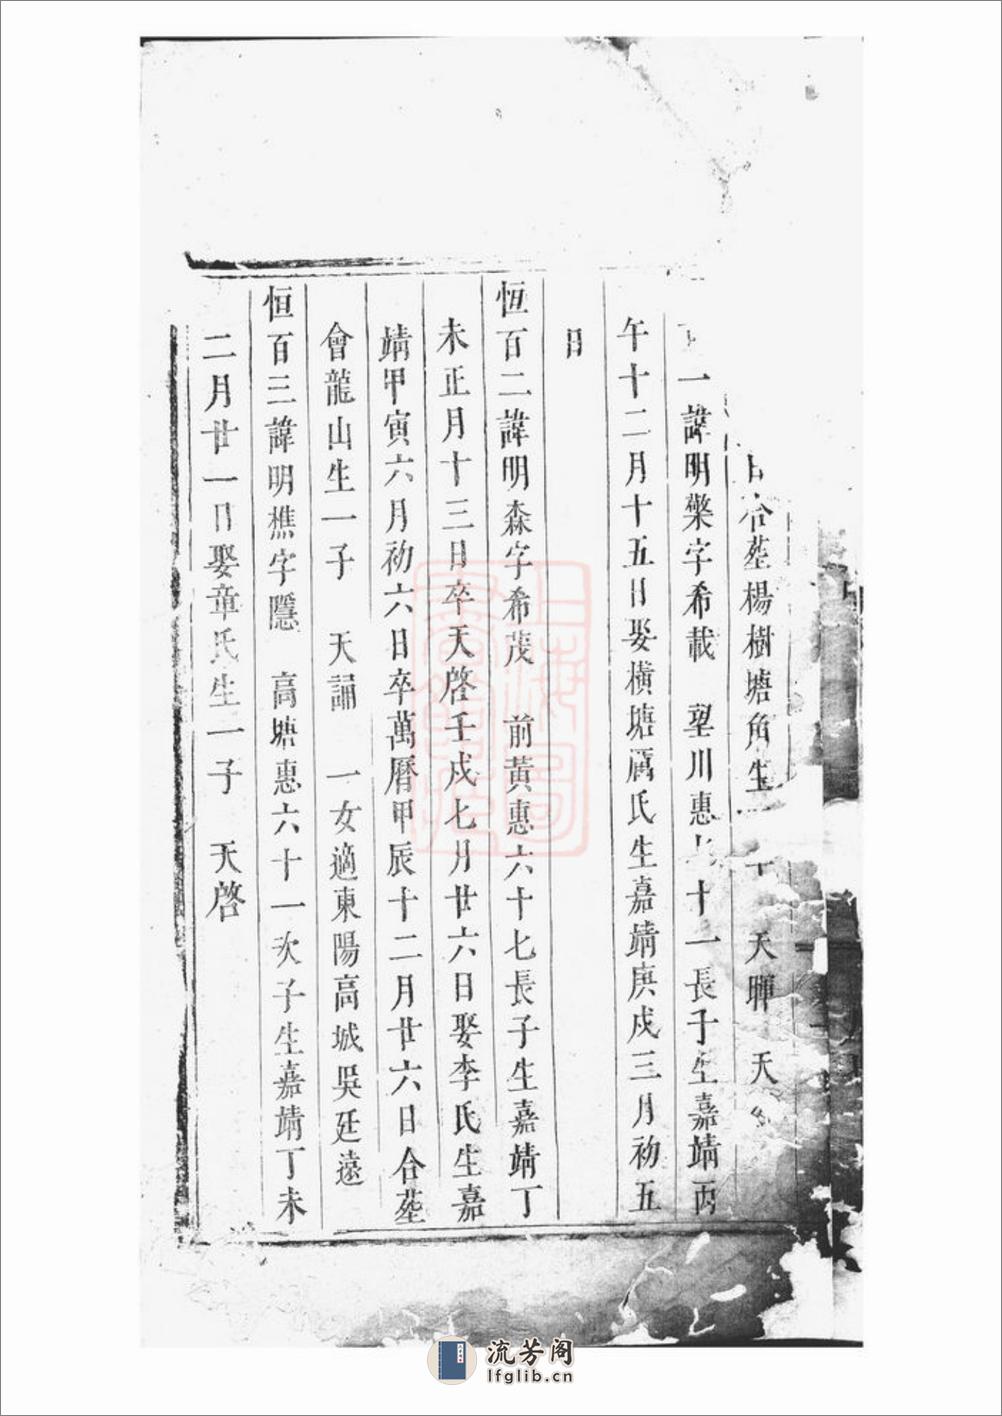 合塟楊樹塘角生 天暉 天
一諱明檠字希載 望川惠七十一長子生嘉靖丙
午十二月十五日娶橫塘厲氏生嘉靖庚戌三月初五
日
恒百二諱明森字希茂 前黃惠六十七長子生嘉靖丁
未正月十三日卒天啓壬戌七月廿六日娶李氏生嘉
靖甲寅六月初六日卒萬曆甲辰十二月廿六日合塟
會龍山生一子 天誦 一女適東陽高城吳廷遠
恒百三諱明樵字隱 高塘惠六十一次子生嘉靖丁未
二月廿一日娶童氏生一子 天啓
流芳阁
lfglib.cn